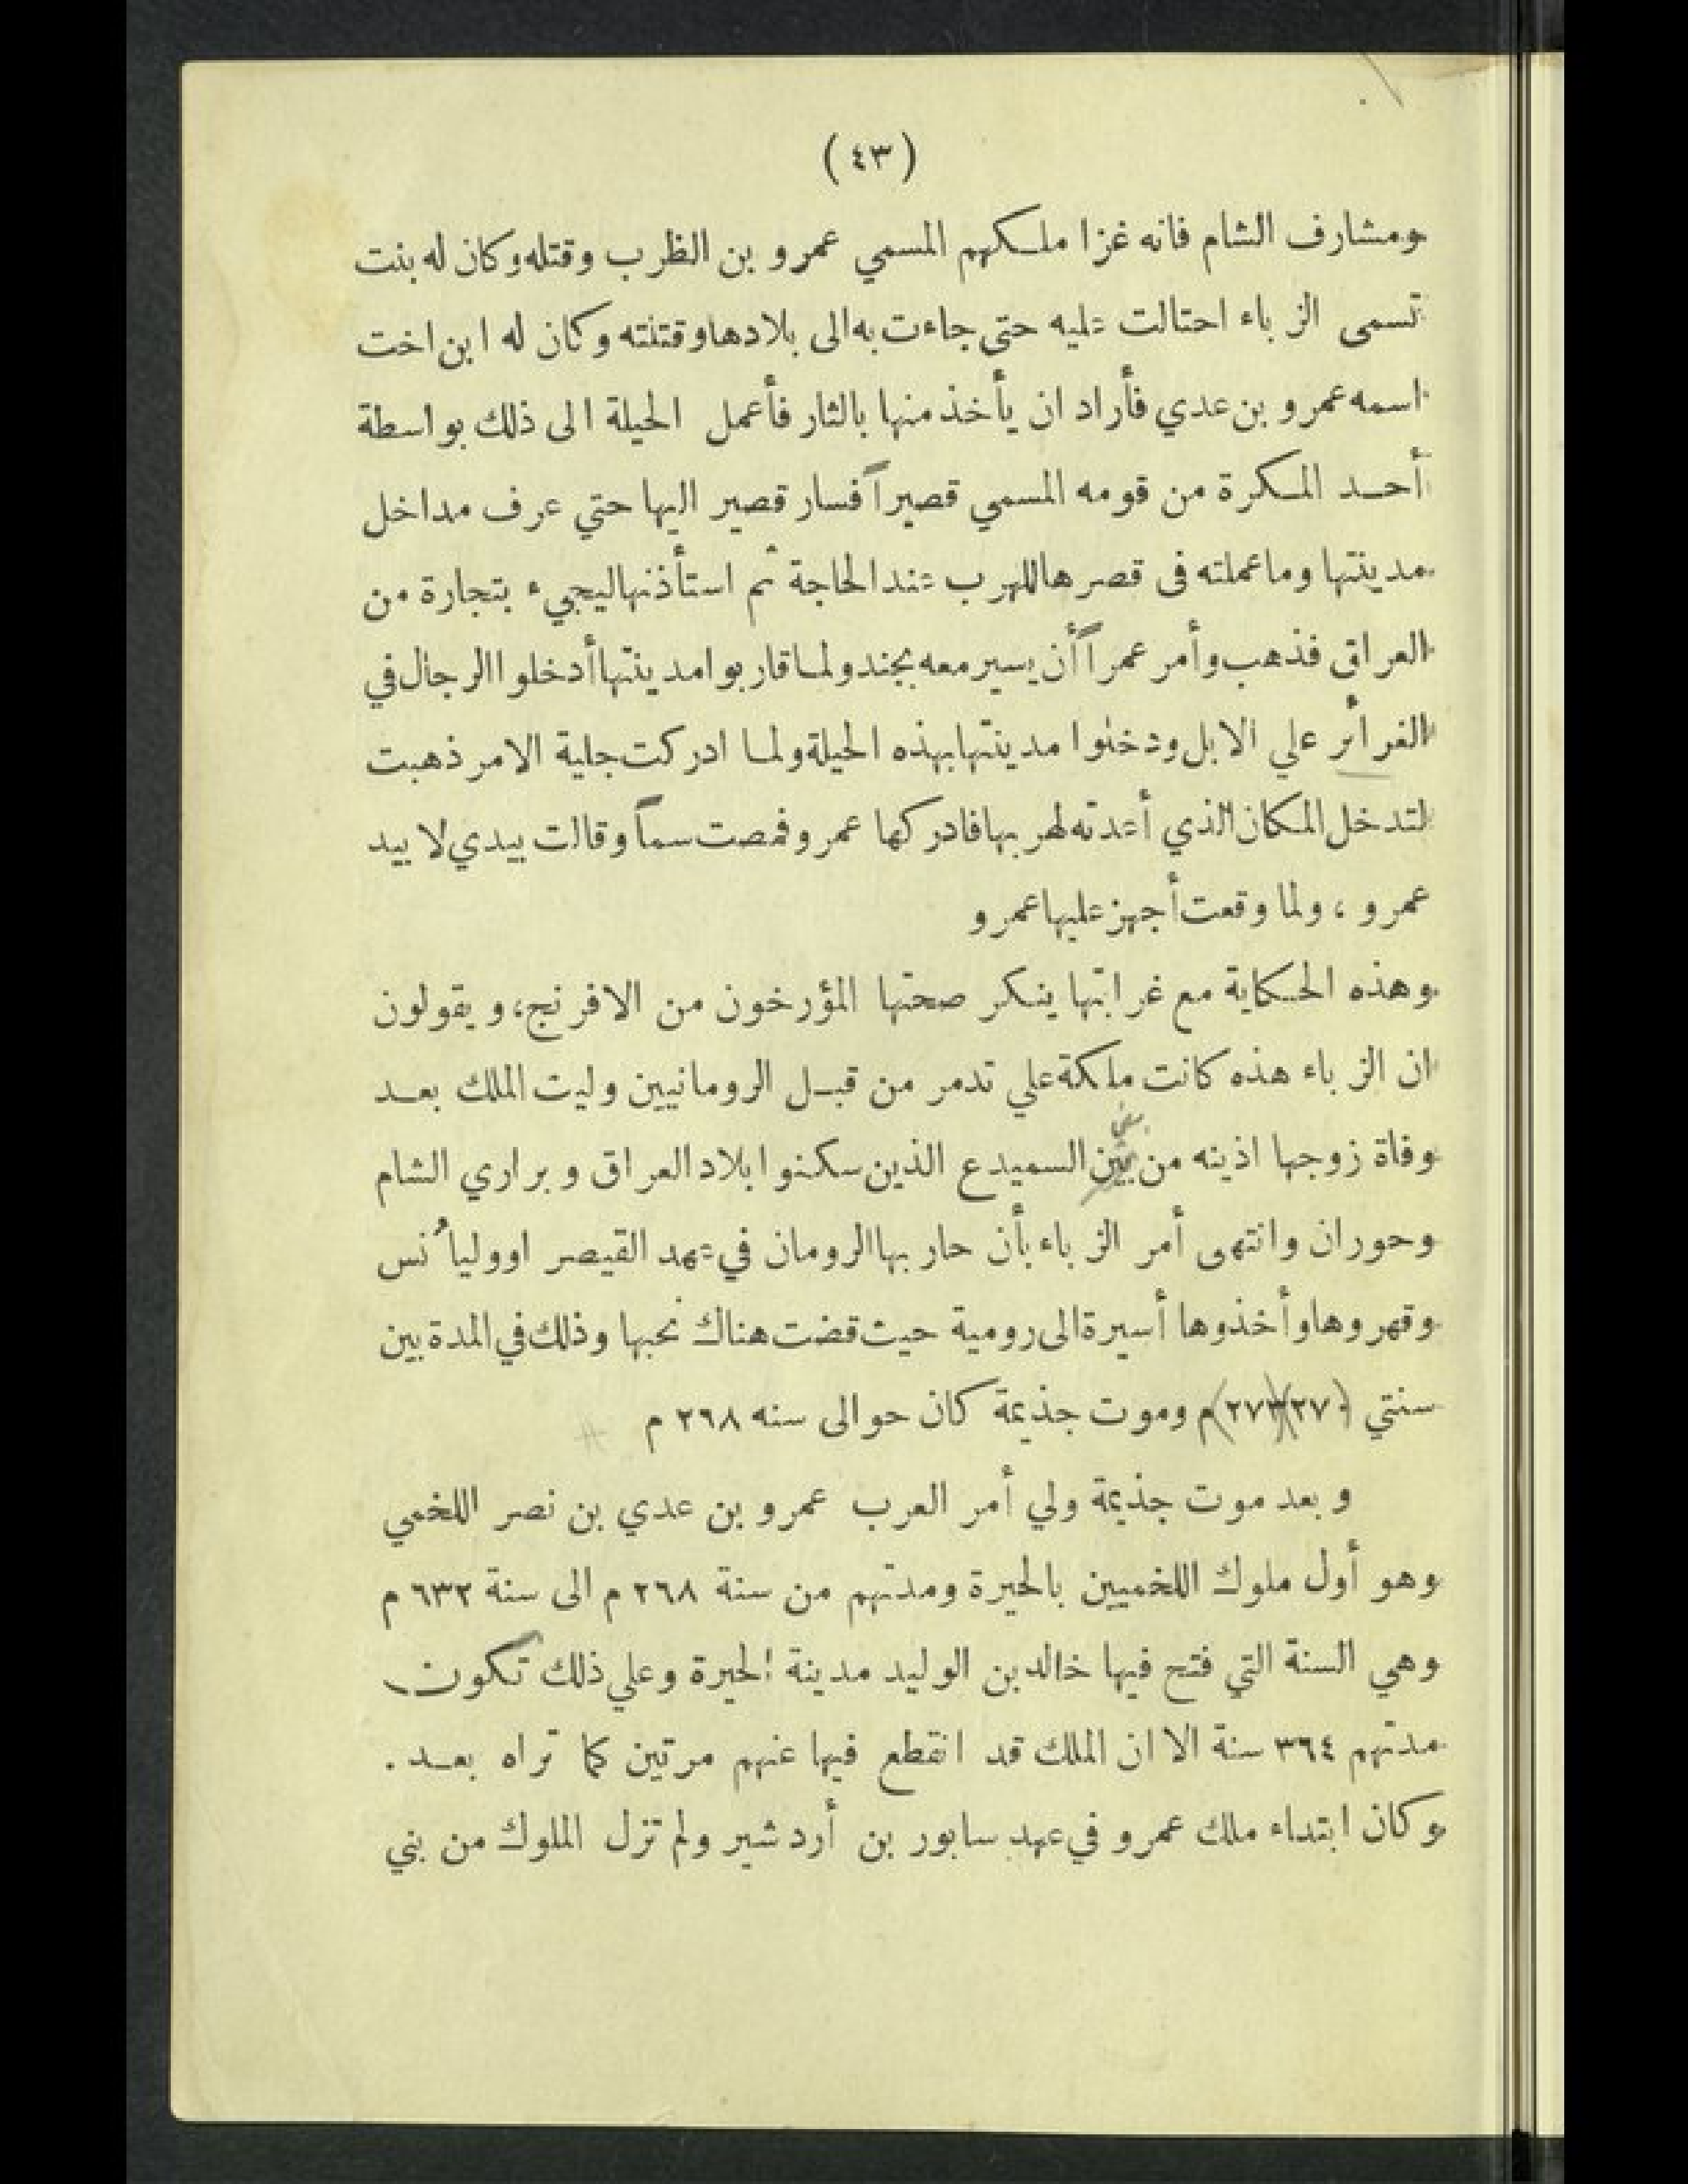 (٤٣)
ومشارف الشام فانه غزا ملكهم المسمي عمرو بن الظرب وقتله وكان له بنت
تسمى الزباء احتالت عليه حتى جاءت به الى بلادها وقتلته وكان له ابن اخت
اسمه عمرو بن عدي فأراد ان يأخذ منها بالثار فأعمل الحيلة الى ذلك بواسطة
أحد المكرة من قومه المسمي قصيراً فسار قصير اليها حتي عرف مداخل
مدينتها وما عملته فى قصرها للهرب عند الحاجة ثم استأذنها ليجيء بتجارة من
العراق فذهب وأمر عمراً أن يسير معه بجند ولما قاربوا مدينتها أدخلوا الرجال في
الغرائر علي الابل ودخلوا مدينتها بهذه الحيلة ولما ادركت جلية الامر ذهبت
لتدخل المكان الذي أعدته لهربها فادركها عمرو فمصت سماً وقالت بيدي لا بيد
عمرو ، ولما وقعت أجهز عليها عمرو
وهذه الحكاية مع غرابتها ينكر صحتها المؤرخون من الافرنج، ويقولون
ان الزباء هذه كانت ملكة علي تدمر من قبل الرومانيين وليت الملك بعد
وفاة زوجها اذينه من بين السميدع الذين سكنوا بلاد العراق وبراري الشام
وحوران وانتهى أمر الزباء بأن حاربها الرومان في عهد القيصر اوولياُنس
وقهروها وأخذوها أسيرة الى رومية حيث قضت هناك نحبها وذلك في المدة بين
سنتي (٢٧٠)(٢٧٣)م وموت جذيمة كان حوالى سنه ٢٦٨ م
وبعد موت جذيمة ولي أمر العرب عمرو بن عدي بن نصر اللخمي
وهو أول ملوك اللخميين بالحيرة ومدتهم من سنة ٢٦٨ م الى سنة ٦٣٢ م
وهي السنة التي فتح فيها خالد بن الوليد مدينة الحيرة وعلي ذلك تكون
مدتهم ٣٦٤ سنة الا ان الملك قد انقطع فيها عنهم مرتين كما تراه بعد .
وكان ابتداء ملك عمرو في عهد سابور بن أردشير ولم تزل الملوك من بني